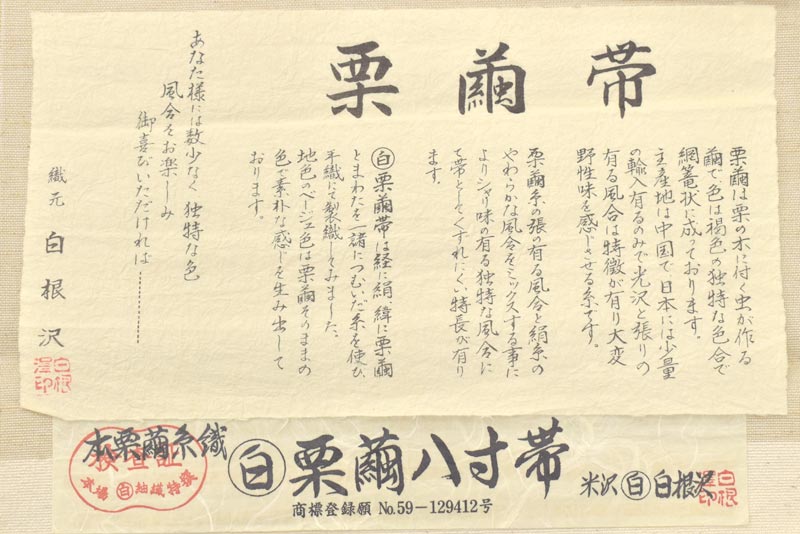 栗繭帯
栗繭は栗の木に付く虫が作る
繭で、色は褐色の独特な色合で
網篭状に成っております。
主産地は中国で、日本には少量
の輸入有るのみで光沢と張りの
有る風合は特徴が有り大変
野性味を感じさせる糸です。
栗繭糸の張の有る風合と絹糸の
やわらかな風合をミックスする事に
よりシャリ味の有る独特な風合に
て帯としてくずれにくい特長が有り
ます。
白栗繭帯は経に絹、緯に栗繭
とまわたを一諸につむいだ糸を使い
平織にて製織してみました。
地色のベージュ色は栗繭そのままの
色で素朴な感じを生み出して
おります。
あなた様には数少なく独特な色
風合をお楽しみ
御喜びいただければ…………
織元 白根沢
白根澤印
本栗繭糸織
検査証
白
白栗繭八寸帯
商標登録願 No.59−129412号
米沢 白 白根沢
白根澤印